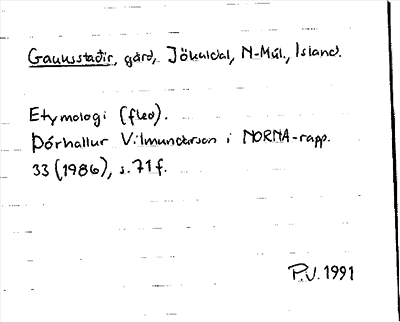 Gauksstaðir, gård, Jökuldal, N-Múl., Island.
Etymologi (fleo).
Þórhallur Vilmundarson i NORNA-rapp.
33 (1986), s. 71 f.
P.V. 1991